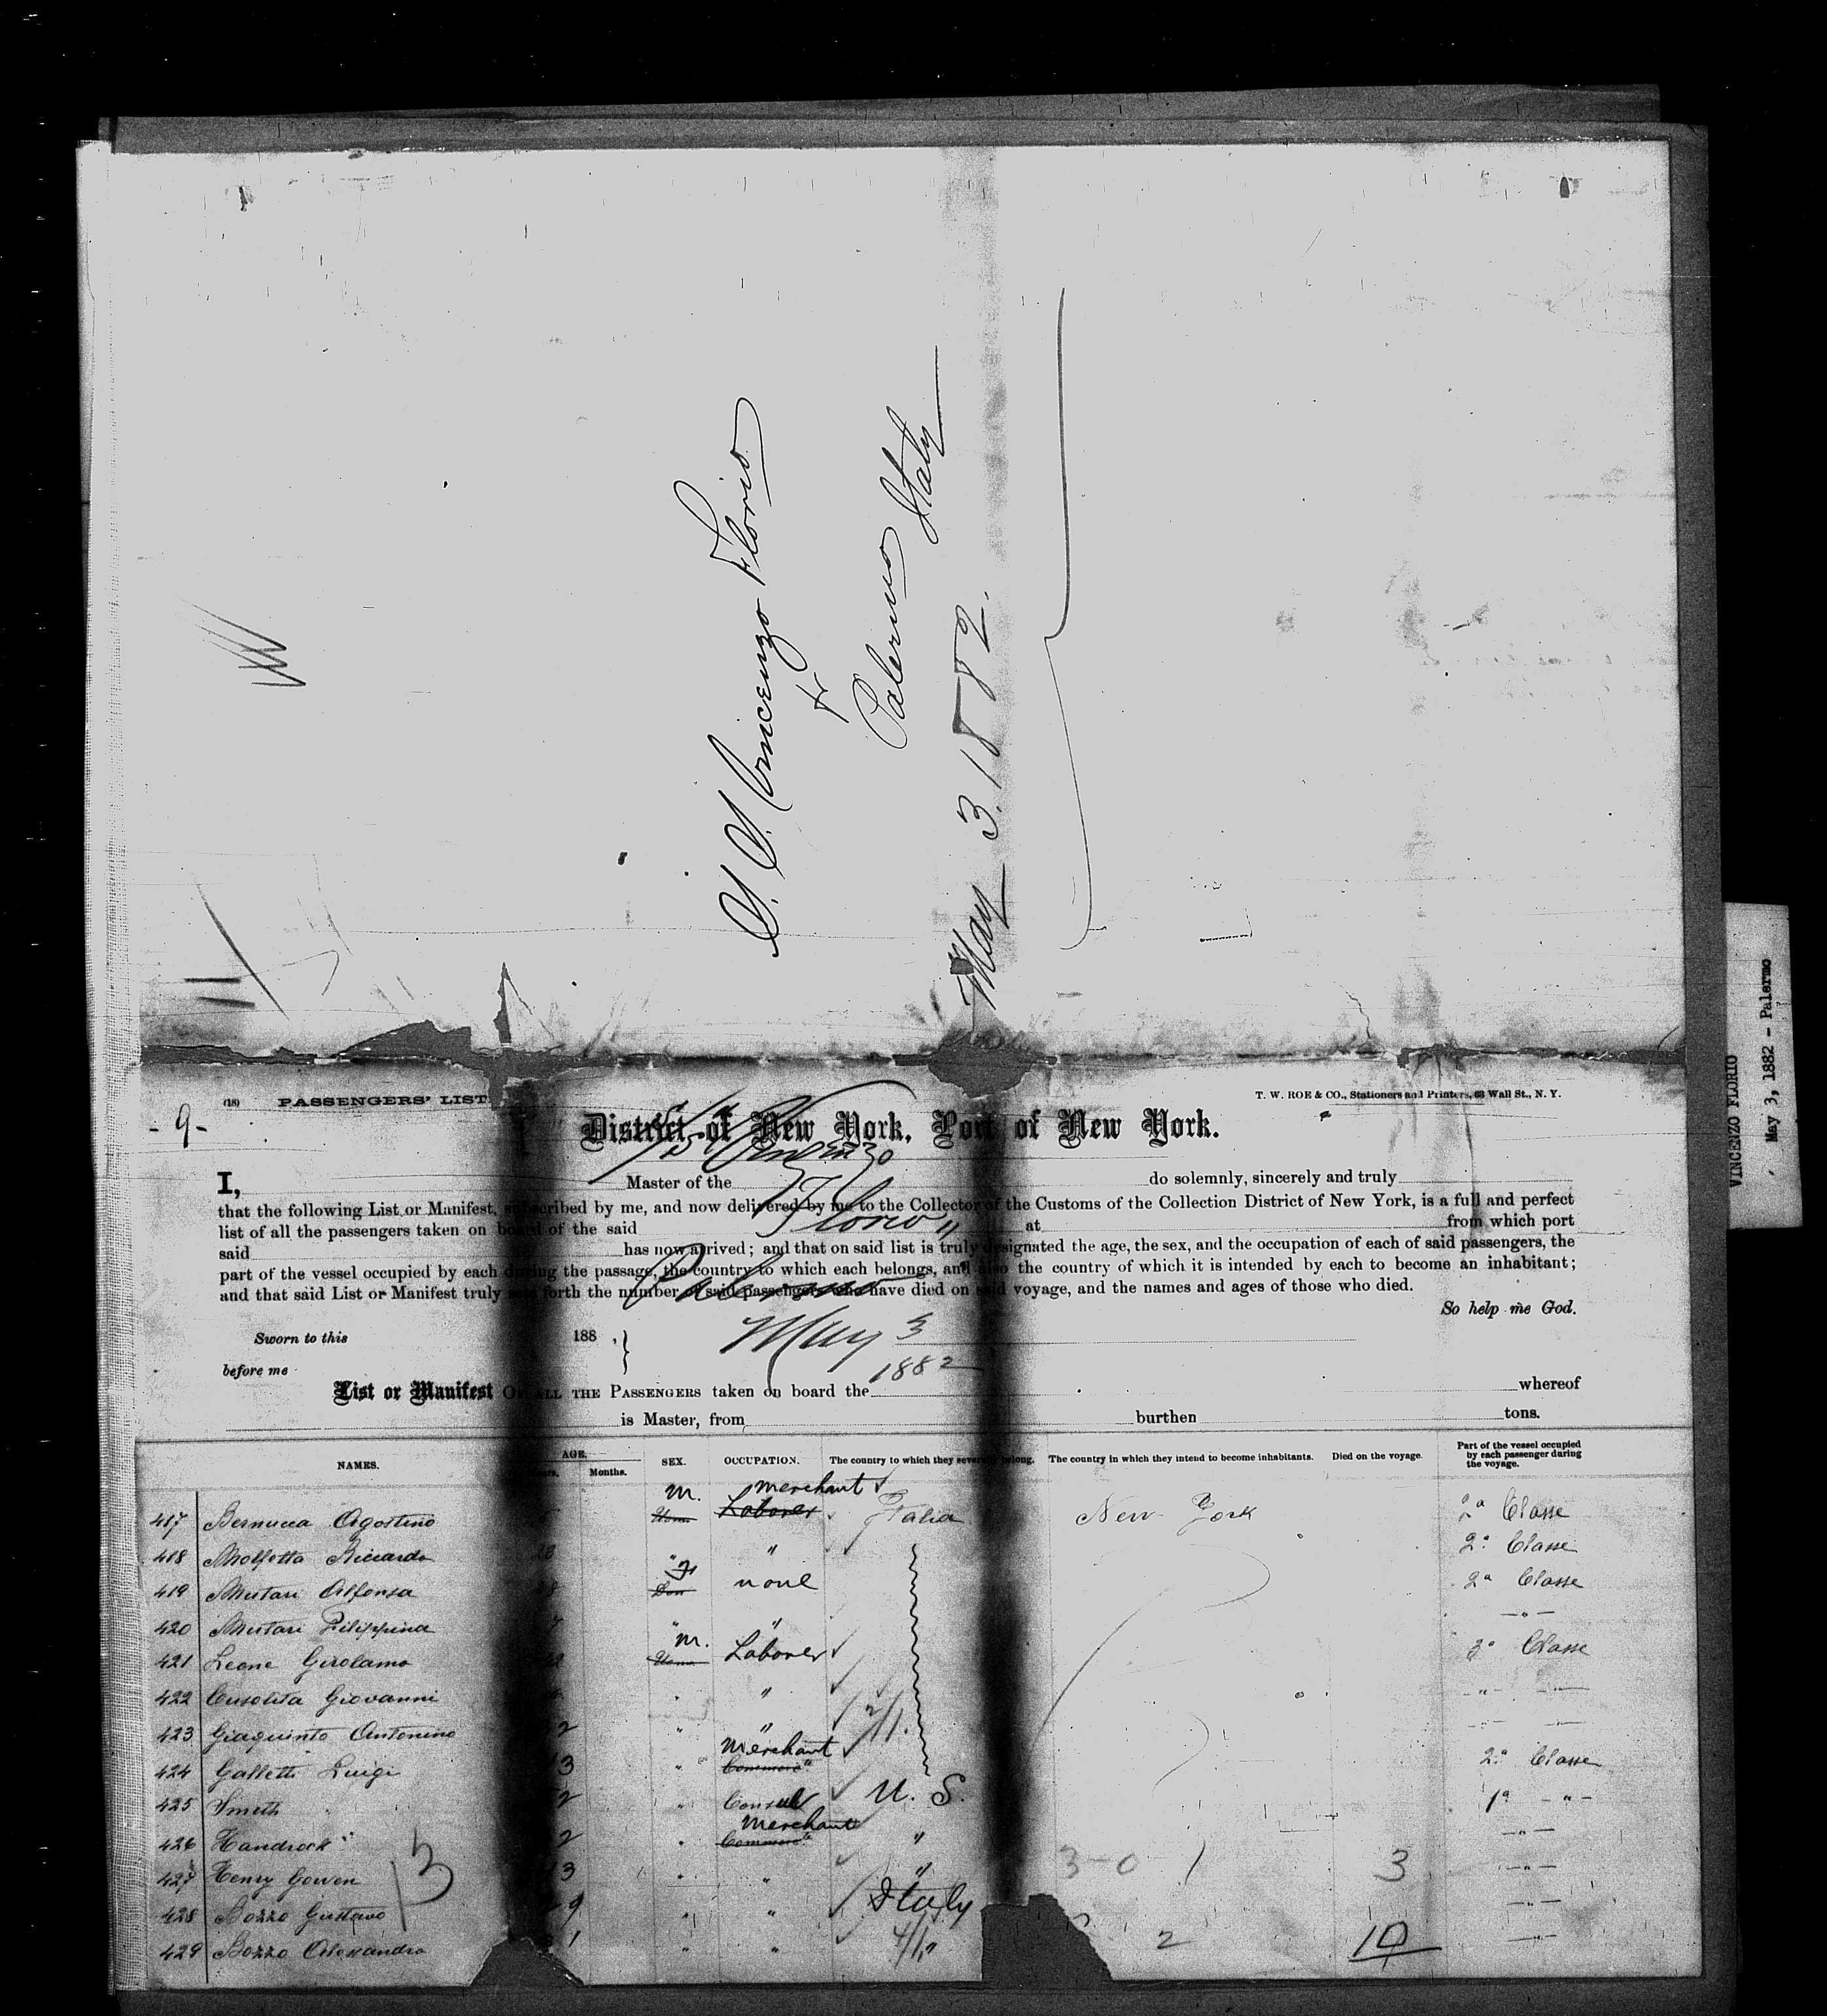 S.S. Vincenzo Florio
fr
Palermo Italy
May 3. 1882.
VINCENZO FLORIO
May 3, 1882 - Palermo
- 9 -
(18) PASSENGERS' LIST.
T. W. ROE & CO., Stationers and Printers, 63 Wall St., N. Y.
District of New York, Port of New York.
S.S. Vincenzo
Florio"
Palermo
May 3
1882
I, Master of the do solemnly, sincerely and truly
that the following List or Manifest, subscribed by me, and now delivered by me to the Collector of the Customs of the Collection District of New York, is a full and perfect
list of all the passengers taken on board of the said at from which port
said has now arrived; and that on said list is truly designated the age, the sex, and the occupation of each of said passengers, the
part of the vessel occupied by each during the passage, the country to which each belongs, and also the country of which it is intended by each to become an inhabitant;
and that said List or Manifest truly sets forth the number of said passengers who have died on said voyage, and the names and ages of those who died.
So help me God.
Sworn to this 188 ,
before me
List or Manifest OF ALL THE PASSENGERS taken on board the whereof
is Master, from burthen tons.
NAMES. AGE. Years. Months. SEX. OCCUPATION. The country to which they severally belong. The country in which they intend to become inhabitants. Died on the voyage. Part of the vessel occupied by each passenger during the voyage.
417 Bernucca Agostino m. merchant Laborer Italia New York Classe
418 Molfetta Riccardo " " 2a Classe
419 Mutari Alfonsa none 2a Classe
420 Mutari Filippina " " - " -
421 Leone Girolamo m. Laborer 3a Classe
422 Giovanni " " - " -
423 Giaquinto Antonino 2 " "
424 Galletti Luigi 3 " Merchant 2a Classe
425 Smith 2 " Consul U. S. 1a - " -
426 Handrock 2 " Merchant " - " -
427 Henry Gowen 3 " " " 3-0 1 3 - " -
428 Bozzo Gustavo 9 " " Italy - " -
429 Bozzo Alessandro 1 " " " 2 10 - " -
13